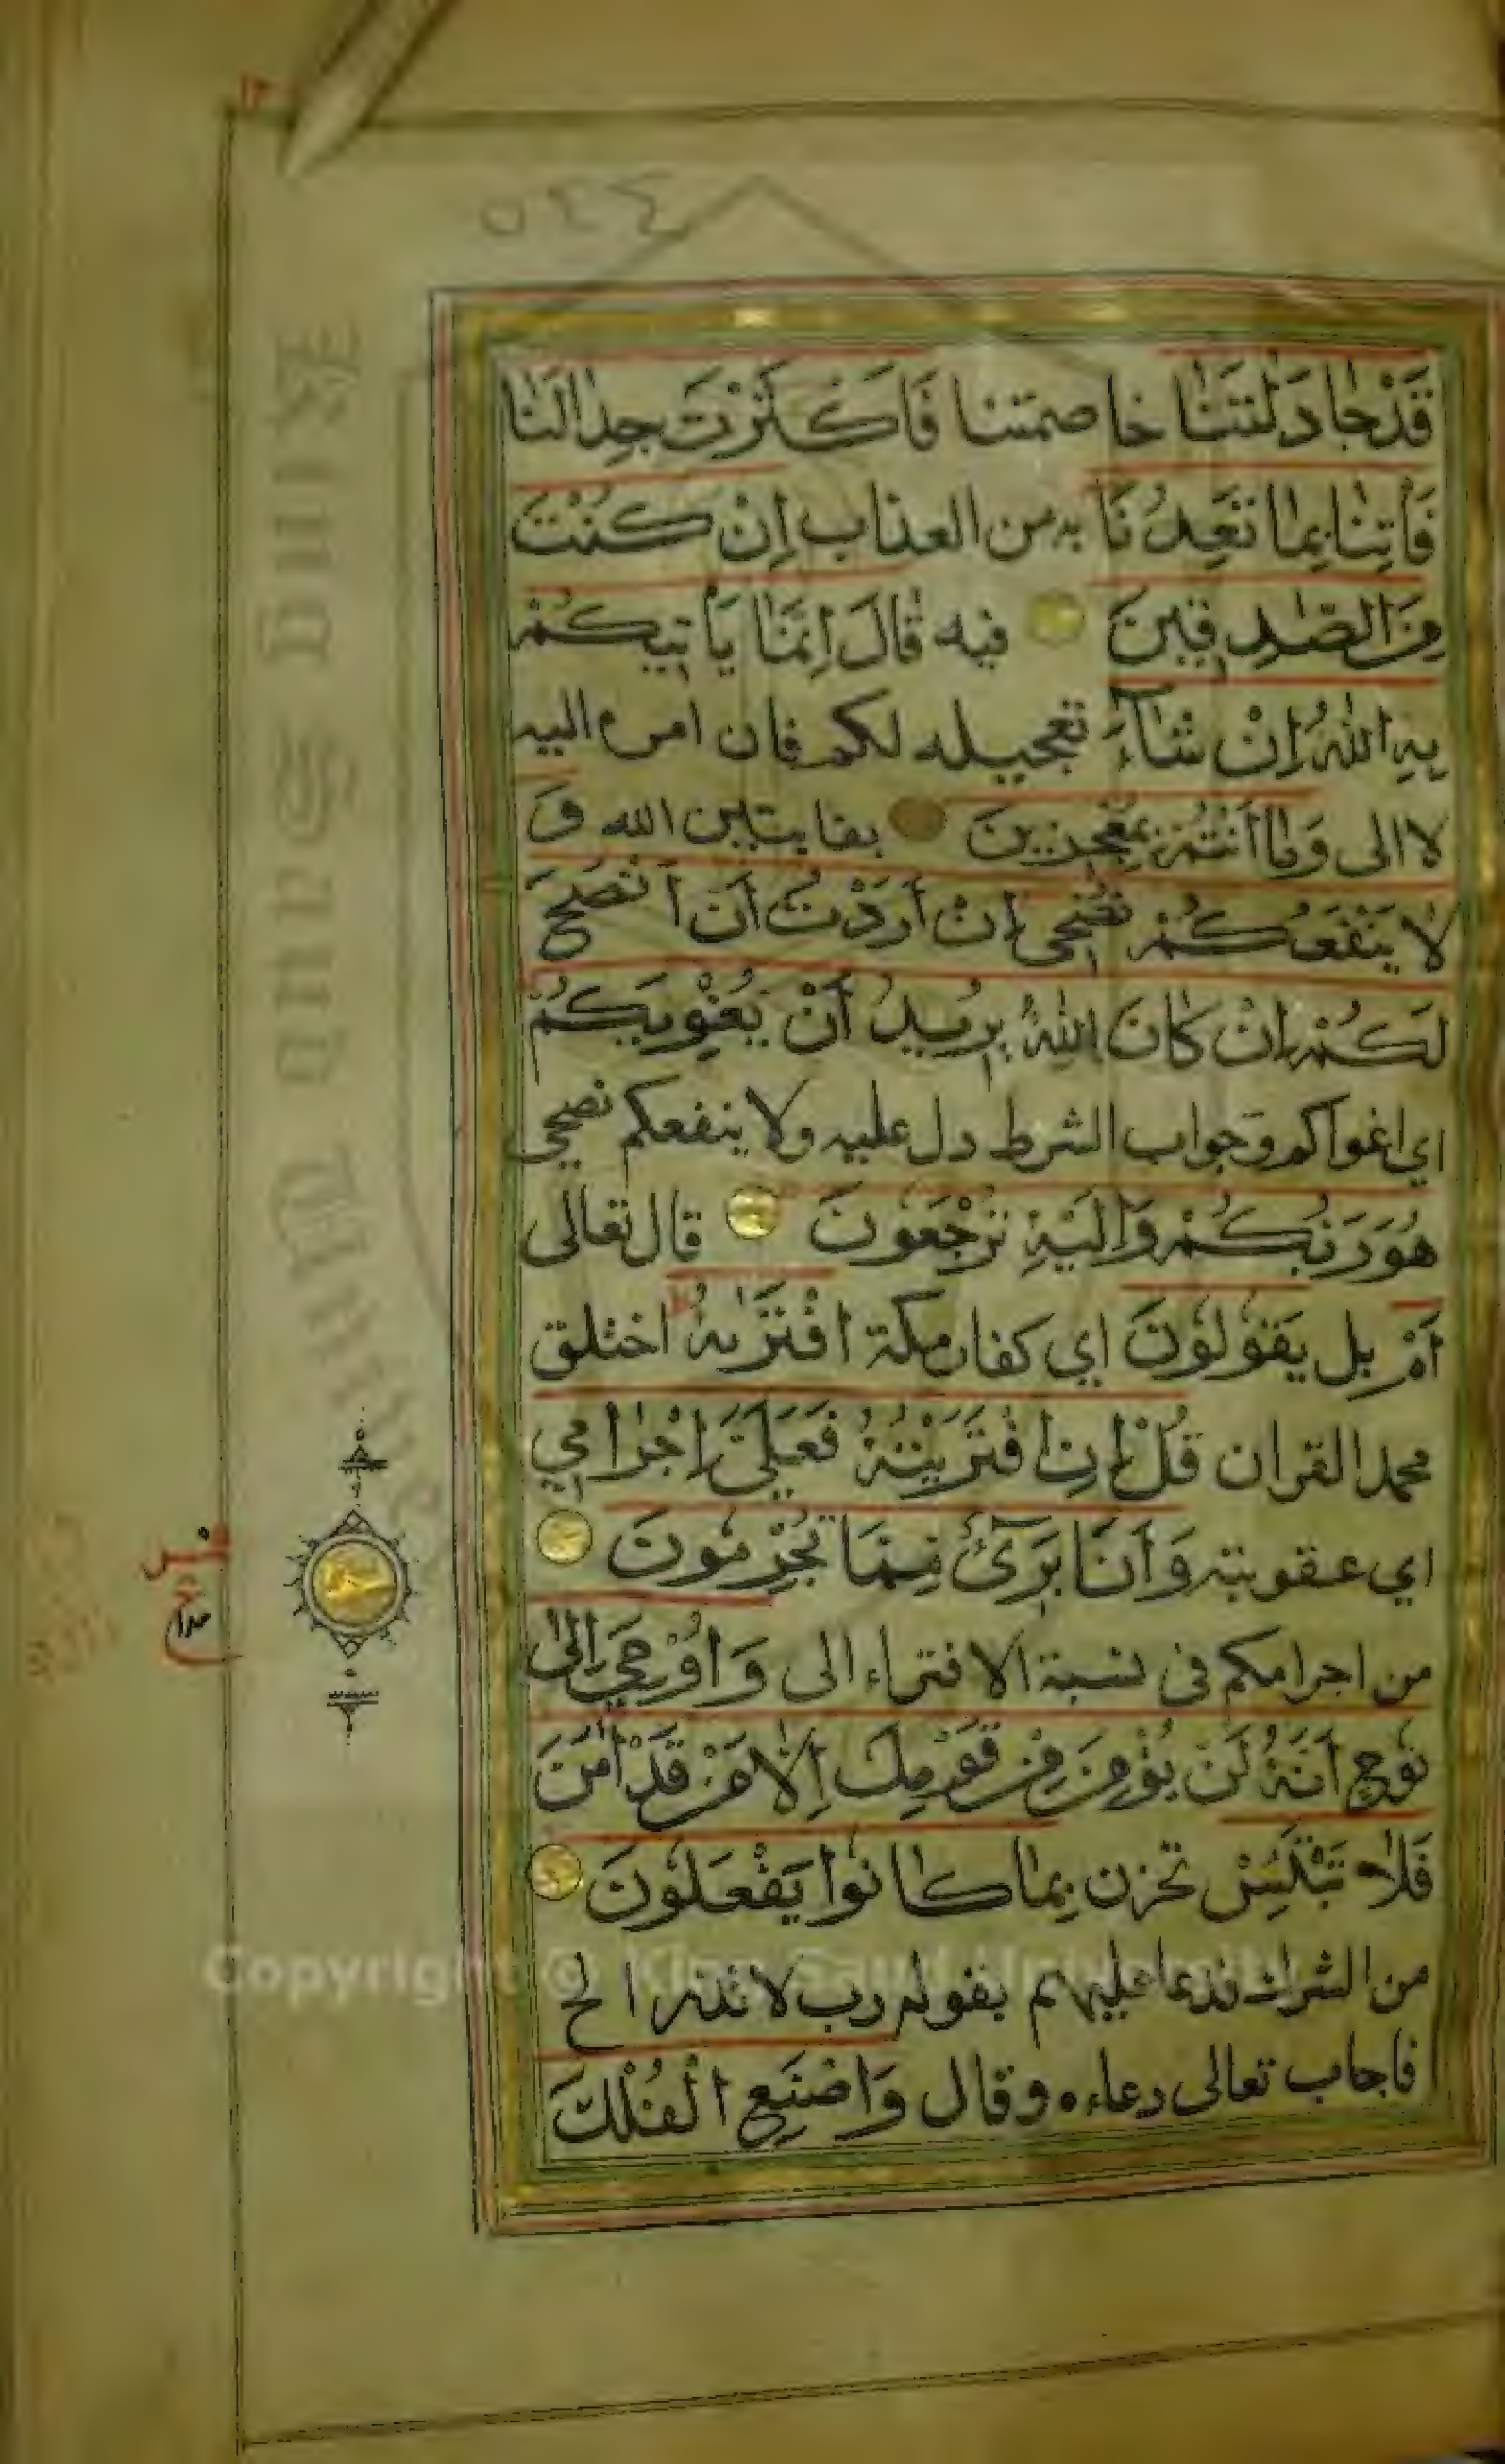 ٥٤٤
قَدْ جَادَلْتَنَا خاصمتنا فَاَكْثَرْتَ جِدَالَنَا
فَأْتِنَا بِمَا تَعِدُنَا به من العذاب اِنْ كُنْتَ
مِنَ الصّٰدِقِينَ فيه قَالَ اِنَّمَا يَأْتِيكُمْ
بِهِ اللّٰهُ اِنْ شَآءَ تعجيله لكم فان امره اليه
لا الى وَمَا أَنْتُمْ بِمُعْجِزِينَ بفايتين الله وَ
لَا يَنْفَعُكُمْ نُصْحِى اِنْ أَرَدْتُ أَنْ أَنْصَحَ
لَكُمْ اِنْ كَانَ اللّٰهُ يُرِيدُ أَنْ يُغْوِيَكُمْ
اي اغواكم وجواب الشرط دل عليه ولا ينفعكم نصحي
هُوَ رَبُّكُمْ وَاِلَيْهِ تُرْجَعُونَ قال تعالى
أَمْ بل يَقُولُونَ اي كفار مكة افْتَرٰىهُ اختلق
محمد القران قُلْ اِنِ افْتَرَيْتُهُ فَعَلَيَّ اِجْرَامِي
اي عقوبته وَأَنَا بَرِٓئٌ مِمَّا تُجْرِمُونَ
من اجرامكم في نسبة الافتراء الى وَاُوحِيَ اِلٰى
نُوحٍ اَنَّهُ لَنْ يُؤْمِنَ مِنْ قَوْمِكَ اِلَّا مَنْ قَدْ اٰمَنَ
فَلَا تَبْتَئِسْ تحزن بِمَا كَانُوا يَفْعَلُونَ
من الشرك فدعا عليهم بقوله رب لا تذر الخ
فاجاب تعالى دعاءه وقال وَاصْنَعِ الْفُلْكَ
Copyright © King Saud University